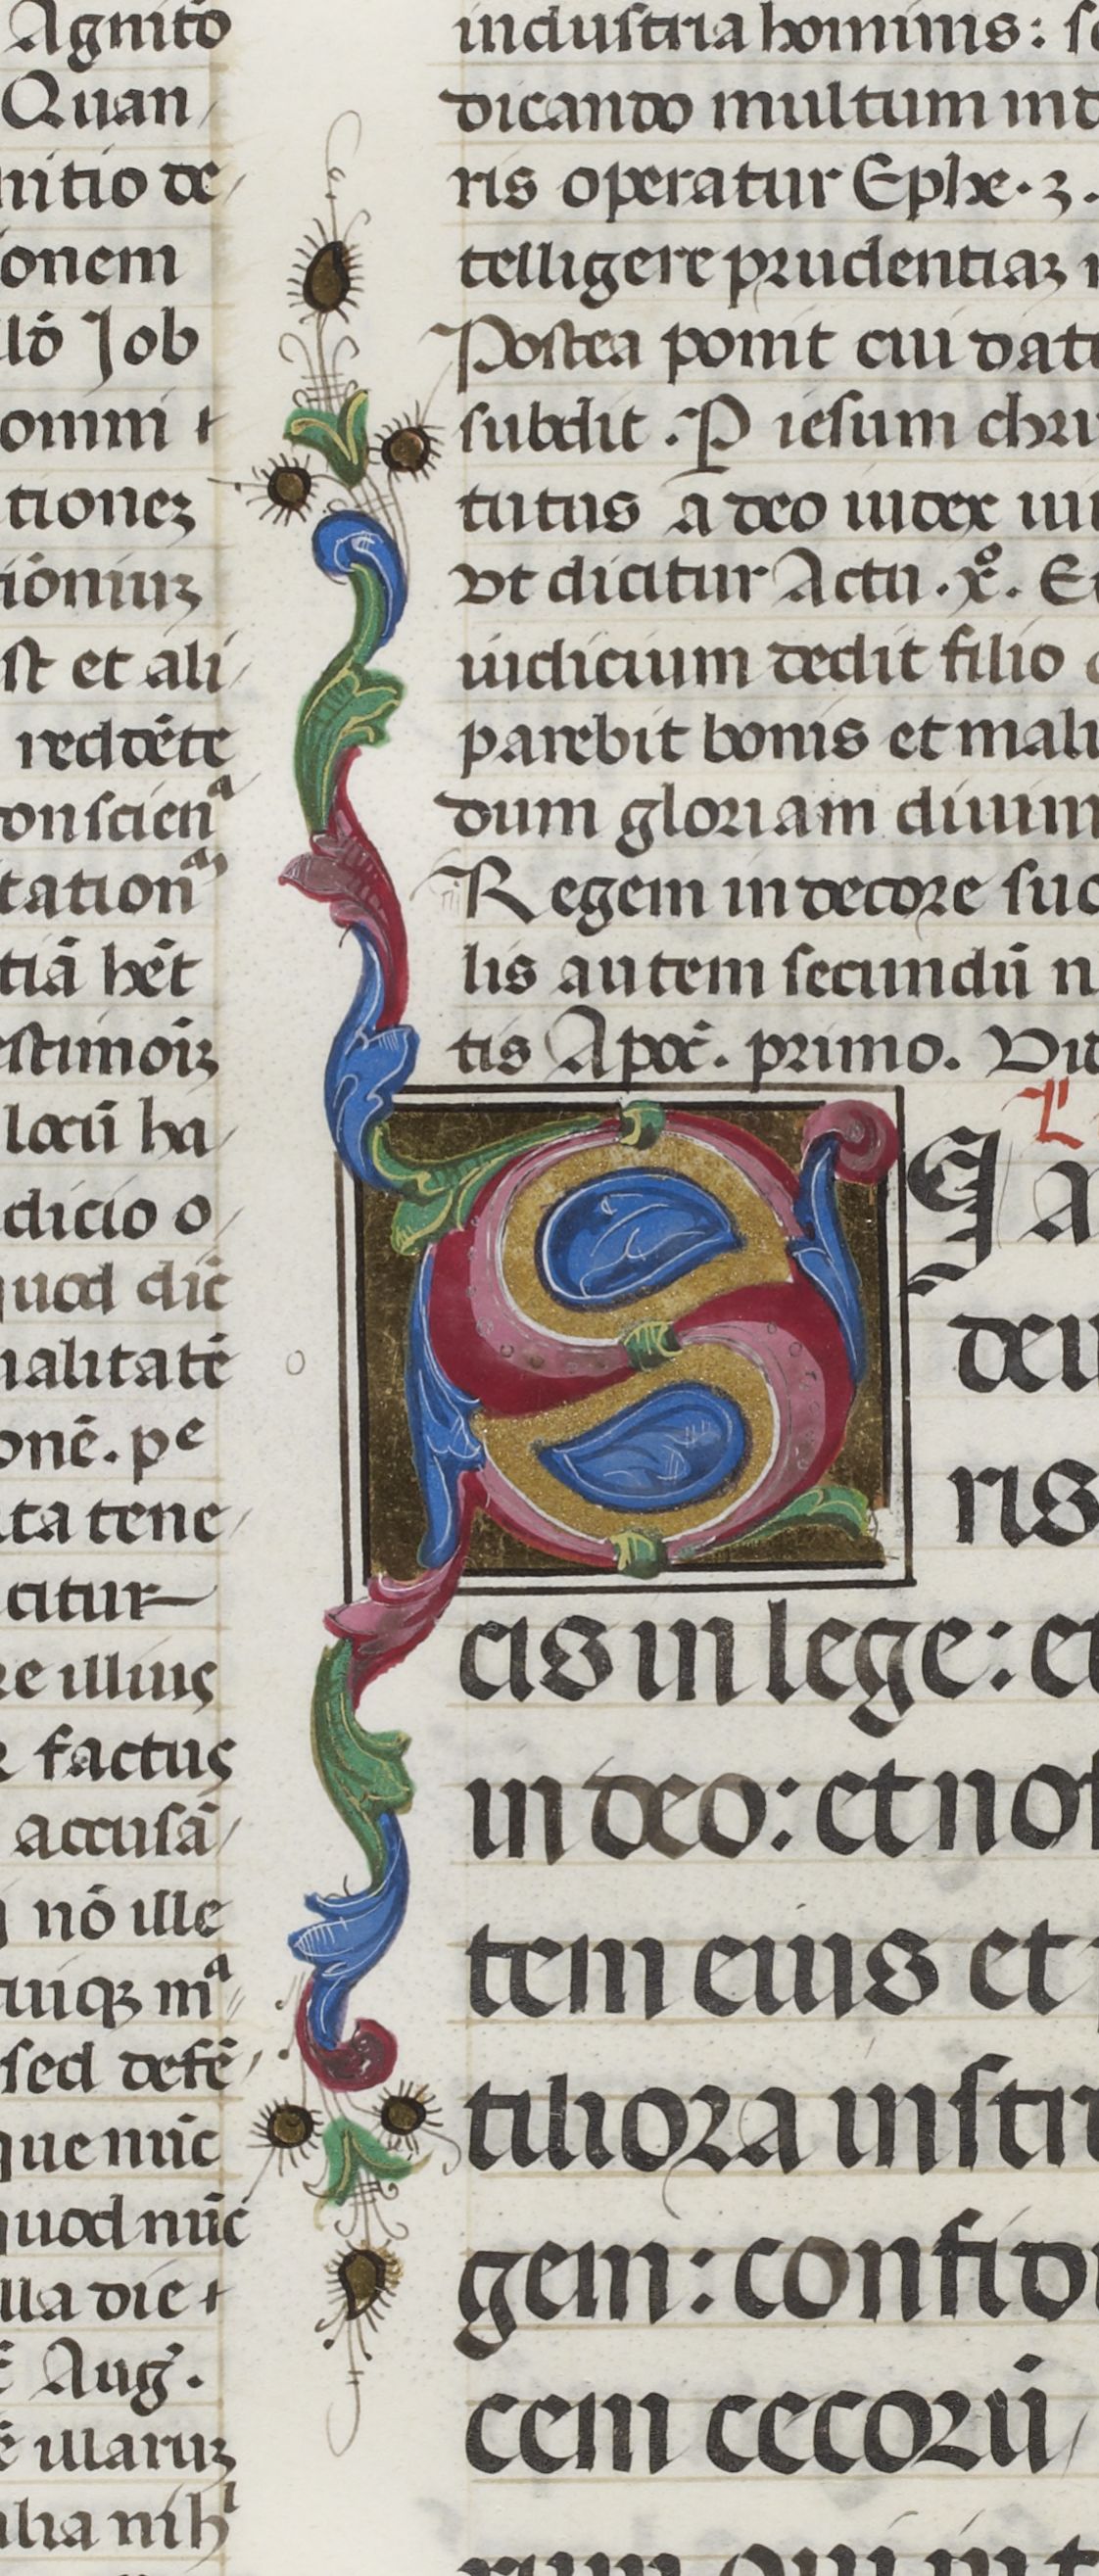 Agnitō
Quan
nitio de
onem
llō Job
omni ⁊
tionez
tiōniuz
st et ali
reddēte
conscienᵃ
tationᵐ
tiā hēt
estimoiz
locū ha
dicio o
quod dic̄
ualitatē
onē. pᵉ
ta tene
citur
re illius
factus
accusā
nō ille
cuiqz mᵃ
sed defē
que nūc
quod nūc
lla die ⁊
Aug̃.
ē illaruz
alia nihˡ
industria hominis: s
dicando multum ind
ris operatur Ephe. 3.
telligere prudentiaz
Postea ponit cui dat
subdit. P iesum chri
tutus a deo iudex ui
vt dicitur Actu. xͦ. E
iudicium dedit filio
parebit bonis et mali
dum gloriam diuin
Regem in decore suo
lis autem secundū n
tis Apoc̄. primo. Vi
SI
deu
ris
cis in lege: et
in deo: et nos
tem eius et
tiliora instr
gem: confid
cem cecorū